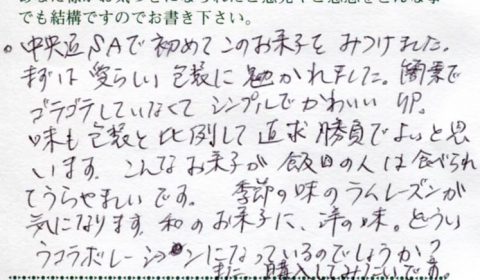 でも結構ですのでお書き下さい。
。中央道SAで初めてこのお菓子をみつけました。
まずは愛らしい包装に魅かれました。簡素で
ゴテゴテしていなくてシンプルでかわいい印。
味も包装と比例して直求勝負でよいと思
います。こんなお菓子が飯田の人は食べられ
てうらやましいです。季節の味のラムレーズンが
気になります。和のお菓子に、洋の味。どうい
うコラボレーションになっているのでしょうか?
また購入してみたいです。